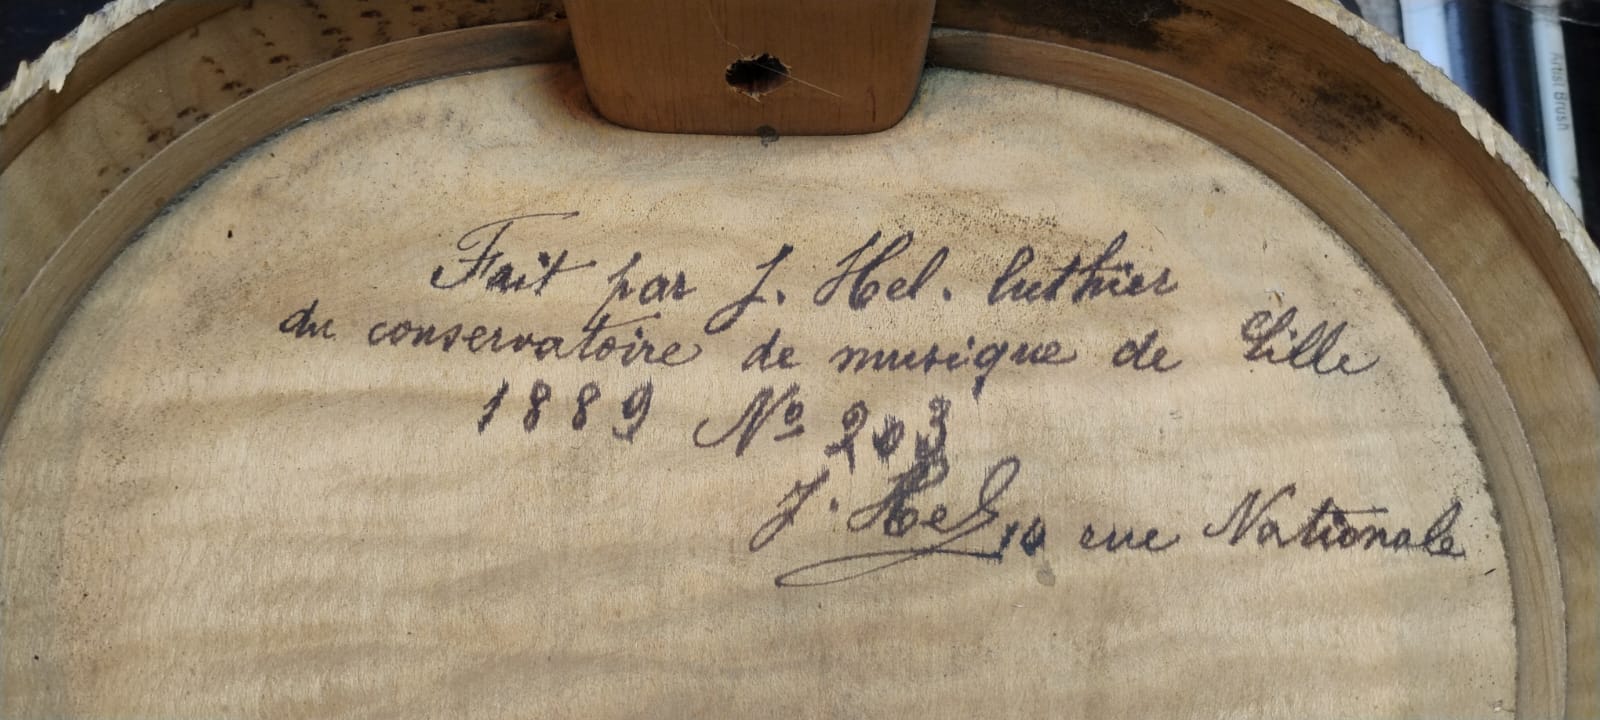 Fait par J. Hel. luthier
du conservatoire de musique de Lille
1889 Nº 203
J. Hel 10 rue Nationale
Artist Brush